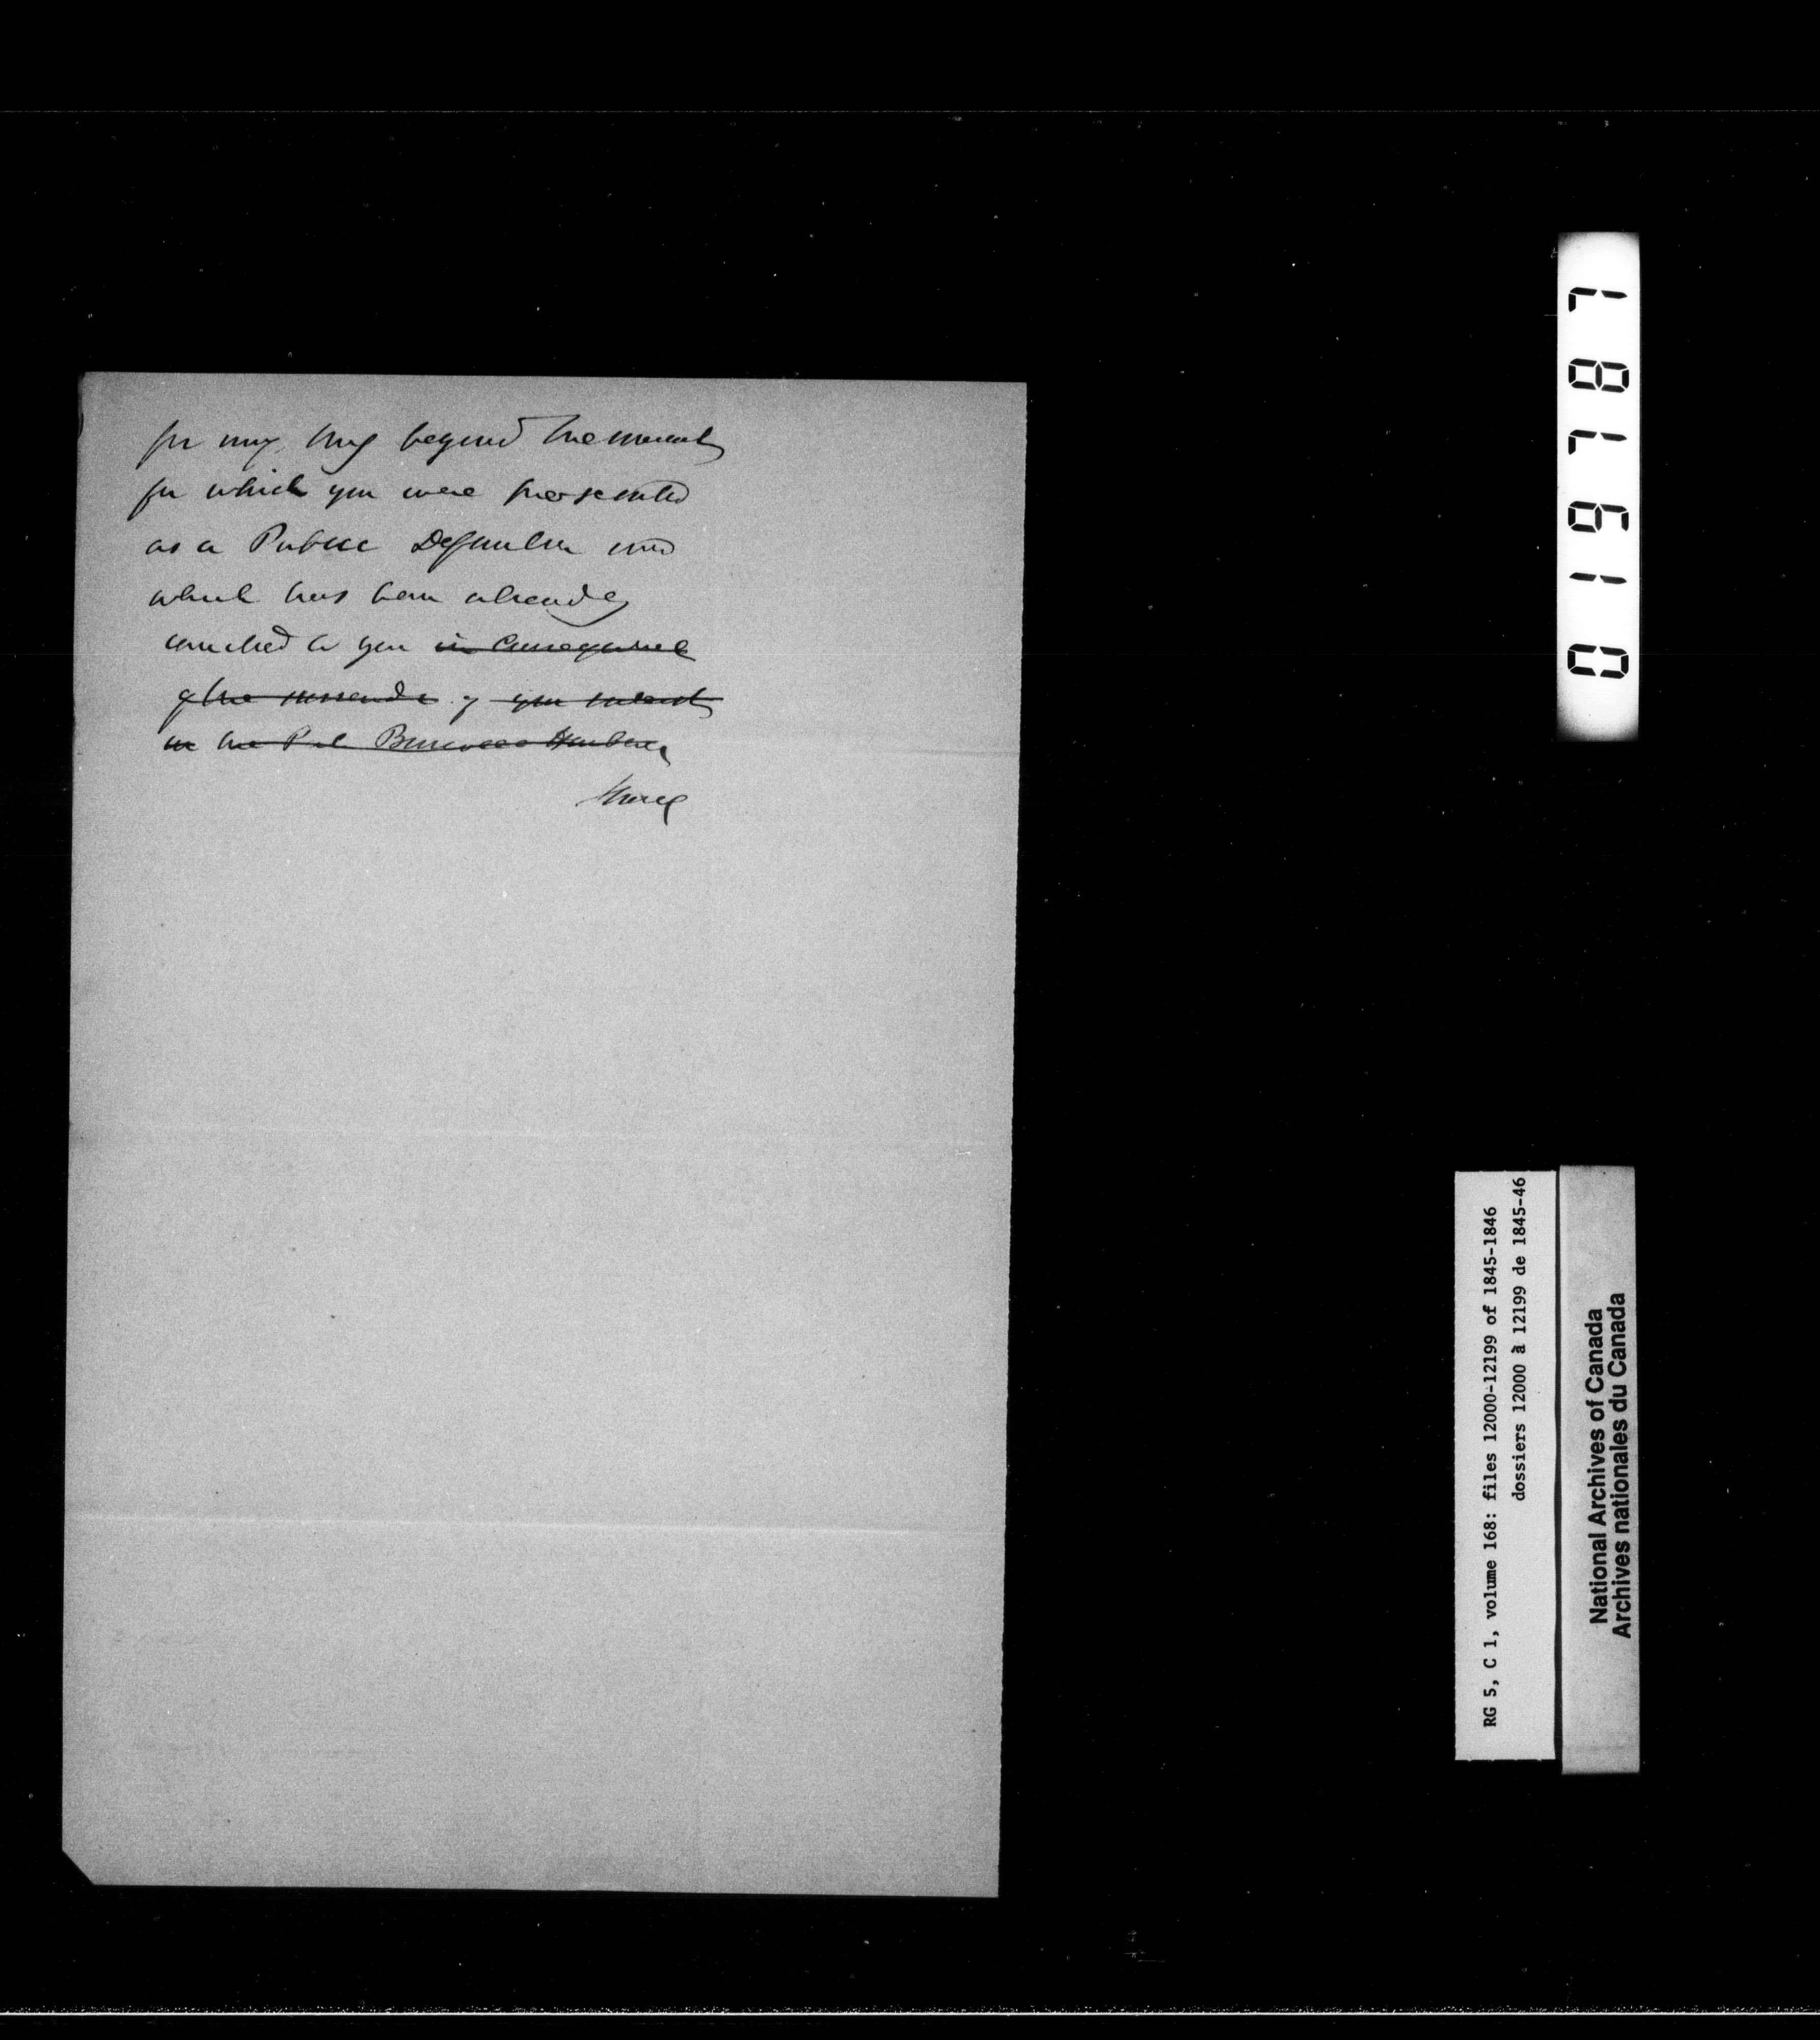 for any thing beyond the amount
for which you were prosecuted
as a Public Defaulter and
which has been already
remitted to you in consequence
of the surrender of your interest
in the Port Burwell Harbour
019787
RG 5, C 1, volume 168: files 12000-12199 of 1845-1846
dossiers 12000 à 12199 de 1845-46
National Archives of Canada
Archives nationales du Canada